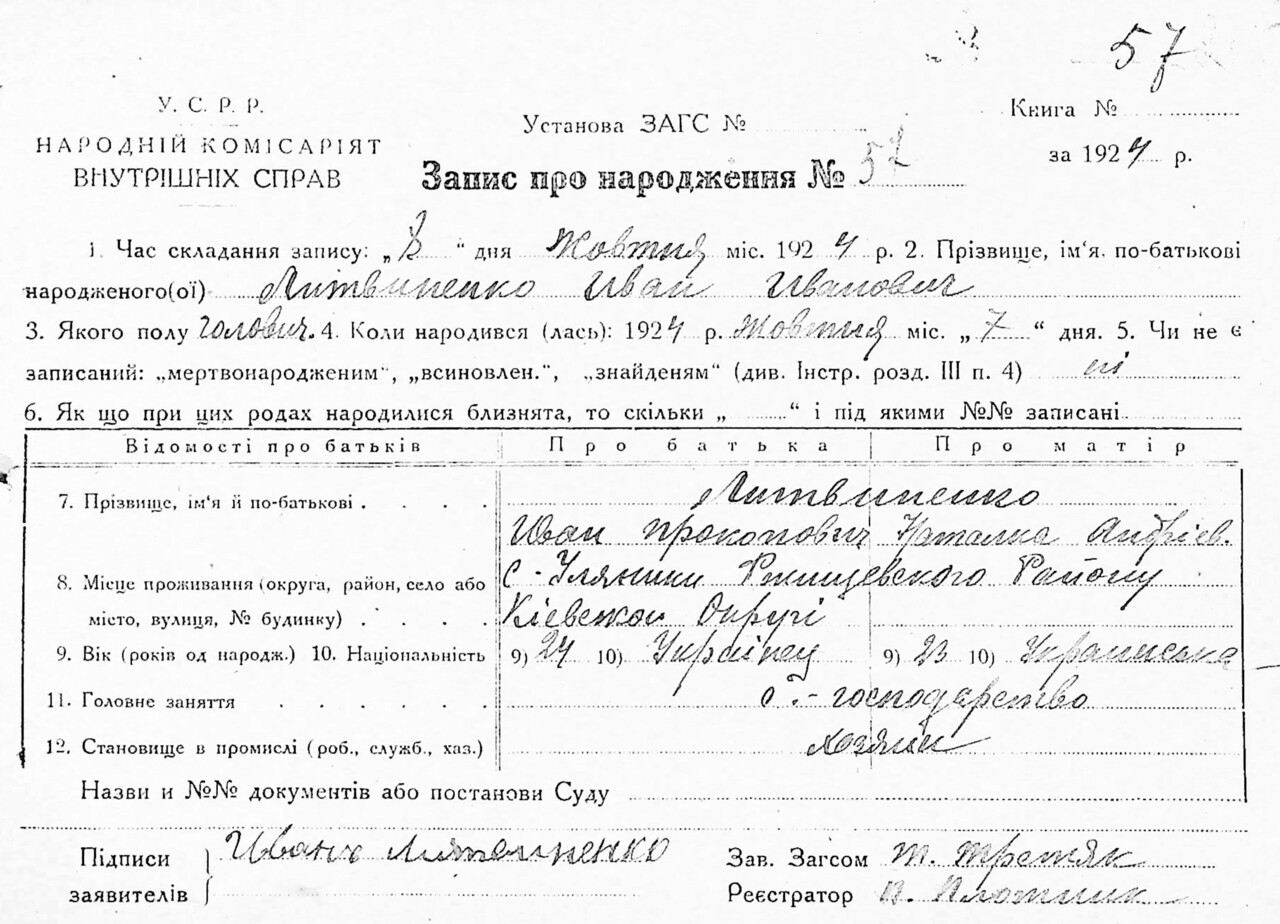 57
У. С. Р. Р.
НАРОДНІЙ КОМІСАРІЯТ
ВНУТРІШНІХ СПРАВ
Установа ЗАГС №
Запис про народження № 57
Книга №
за 1924 р.
1. Час складання запису: „8“ дня Жовтня міс. 1924 р. 2. Прізвище, ім‘я, по-батькові
народженого(ої) Литвиненко Иван Иванович
3. Якого полу чоловіч. 4. Коли народився (лась): 1924 р. Жовтня міс. „7“ дня. 5. Чи не є
записаний: „мертвонародженим“, „всиновлен.“, „знайденям“ (див. Інстр. розд. III п. 4) ні
6. Як що при цих родах народилися близнята, то скільки „ “ і під якими №№ записані
Відомості про батьків Про батька Про матір
7. Прізвище, ім‘я й по-батькові . . . . Литвиненко
Иван Прокопович Наталка Андрієв.
8. Місце проживання (округа, район, село або С-Уляники Ржищевского Району
місто, вулиця, № будинку) . . . . Кіевской Округі
9. Вік (років од народж.) 10. Національність 9) 24 10) Українец 9) 23 10) Украинська
11. Головне заняття . . . . . . с.-господарство
12. Становище в промислі (роб., служб., хаз.) хозяин
Назви и №№ документів або постанови Суду
Підписи Иванъ Литвиненко Зав. Загсом Третяк
заявителів Реєстратор Плотник